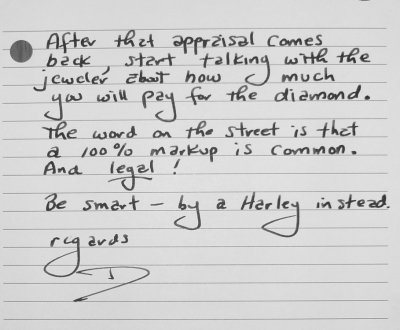 After that appraisal comes
back, start talking with the
jeweler about how much
you will pay for the diamond.
The word on the street is that
a 100% markup is common.
And legal!
Be smart - by a Harley instead.
regards